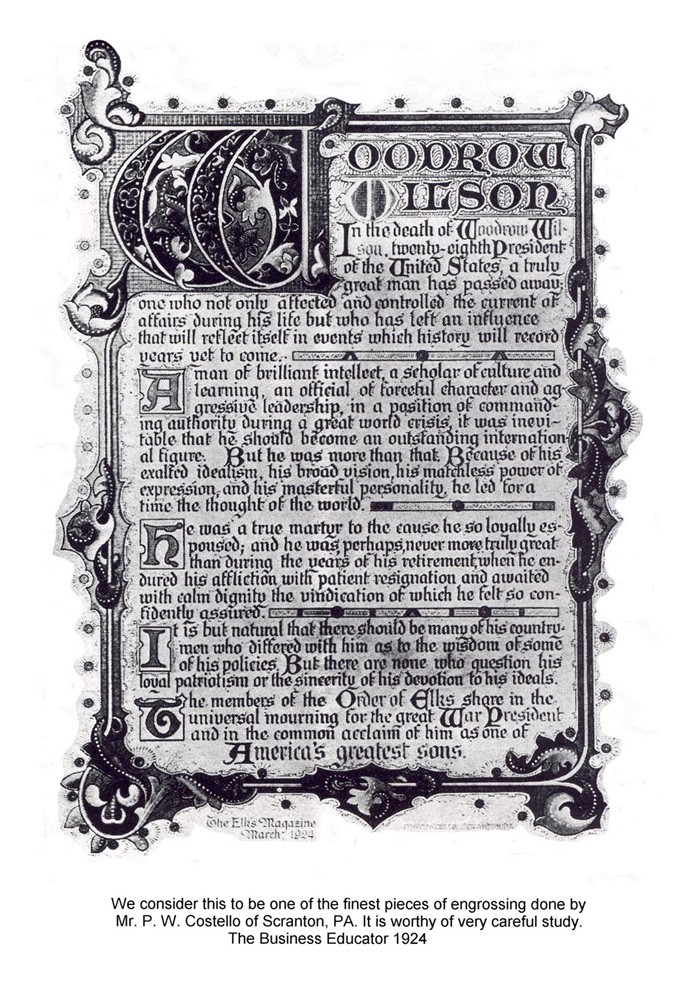 WOODROW
WILSON
In the death of Woodrow Wil-
son, twenty-eighth President
of the United States, a truly
great man has passed away;
one who not only affected and controlled the current of
affairs during his life but who has left an influence
that will reflect itself in events which history will record
years yet to come.
A man of brilliant intellect, a scholar of culture and
learning, an official of forceful character and ag-
gressive leadership, in a position of command-
ing authority during a great world crisis, it was inevi-
table that he should become an outstanding internation
al figure. But he was more than that. Because of his
exalted idealism, his broad vision, his matchless power of
expression, and his masterful personality, he led for a
time the thought of the world.
He was a true martyr to the cause he so loyally es-
poused; and he was, perhaps, never more truly great
than during the years of his retirement, when he en-
dured his affliction with patient resignation and awaited
with calm dignity the vindication of which he felt so con-
fidently assured.
It is but natural that there should be many of his country-
men who differed with him as to the wisdom of some
of his policies. But there are none who question his
loyal patriotism or the sincerity of his devotion to his ideals.
The members of the Order of Elks share in the
universal mourning for the great War President
and in the common acclaim of him as one of
America's greatest sons.
The Elks Magazine
March, 1924
We consider this to be one of the finest pieces of engrossing done by
Mr. P. W. Costello of Scranton, PA. It is worthy of very careful study.
The Business Educator 1924